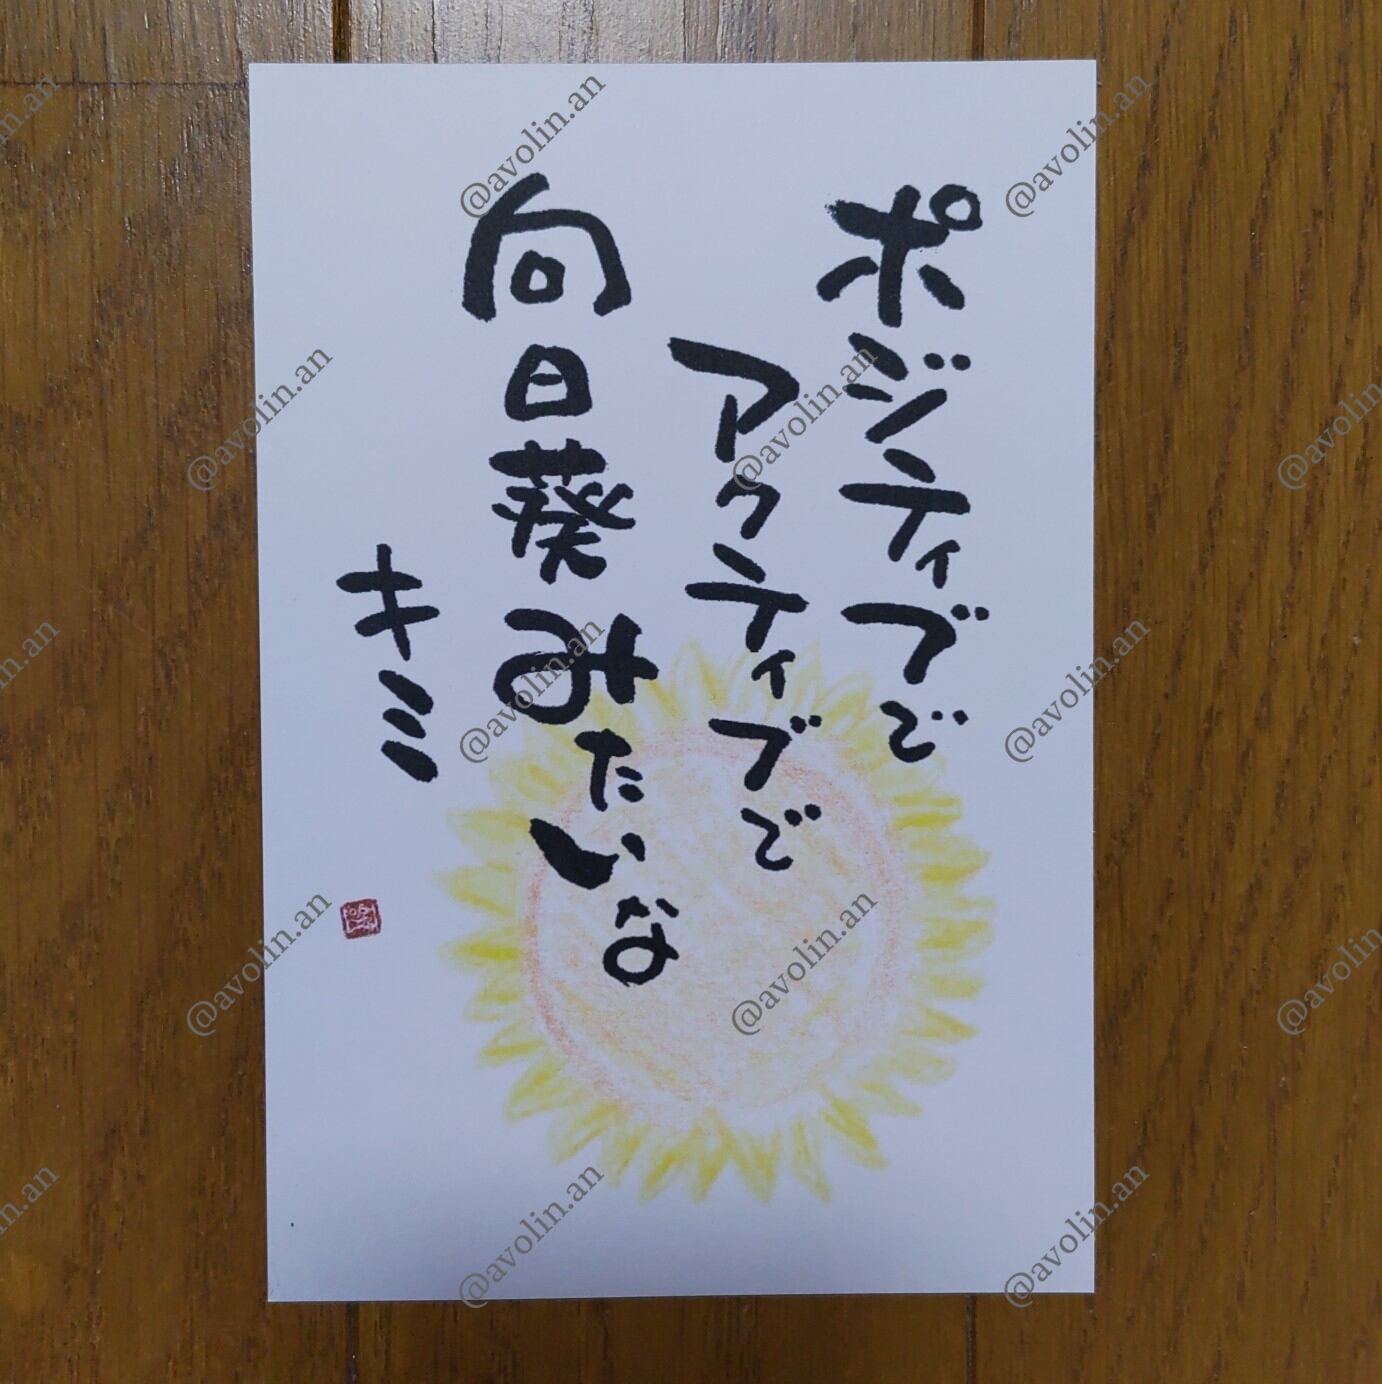 ポジティブで
アクティブで
向日葵みたいな
キミ
@avolin.an